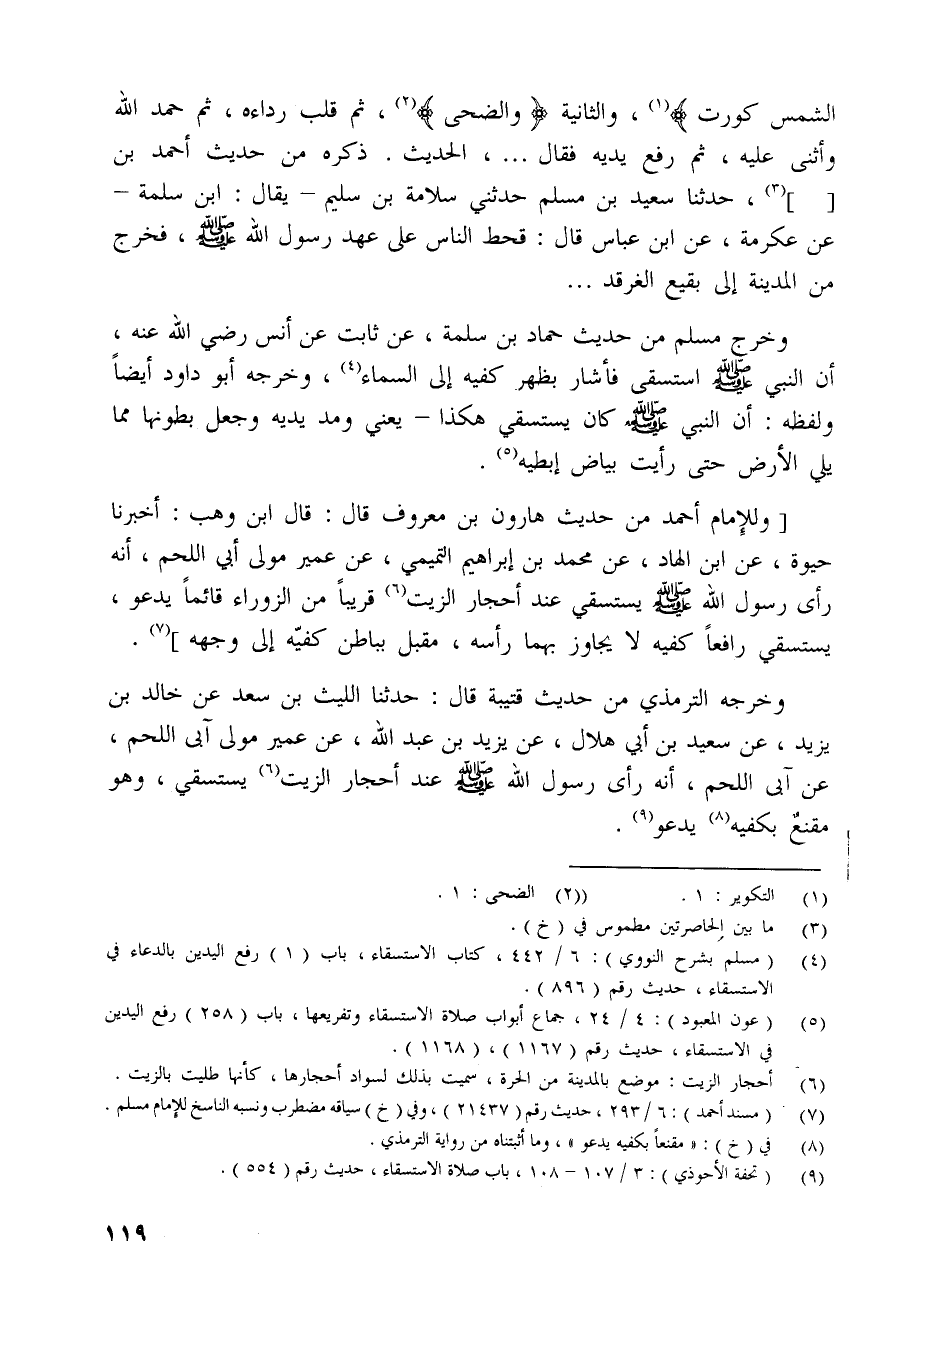 الشمس كورت ﴾(١) ، والثانية ﴿ والضحى ﴾(٢) ، ثم قلب رداءه ، ثم حمد الله
وأثنى عليه ، ثم رفع يديه فقال ... ، الحديث . ذكره من حديث أحمد بن
[ ](٣) ، حدثنا سعيد بن مسلم حدثني سلامة بن سليم – يقال : ابن سلمة –
عن عكرمة ، عن ابن عباس قال : قحط الناس على عهد رسول الله ﷺ ، فخرج
من المدينة إلى بقيع الغرقد ...
وخرج مسلم من حديث حماد بن سلمة ، عن ثابت عن أنس رضي الله عنه ،
أن النبي ﷺ استسقى فأشار بظهر كفيه إلى السماء(٤) ، وخرجه أبو داود أيضاً
ولفظه : أن النبي ﷺ كان يستسقي هكذا – يعني ومد يديه وجعل بطونها مما
يلي الأرض حتى رأيت بياض إبطيه(٥) .
[ وللإمام أحمد من حديث هارون بن معروف قال : قال ابن وهب : أخبرنا
حيوة ، عن ابن الهاد ، عن محمد بن إبراهيم التميمي ، عن عمير مولى أبي اللحم ، أنه
رأى رسول الله ﷺ يستسقي عند أحجار الزيت(٦) قريباً من الزوراء قائماً يدعو ،
يستسقي رافعاً كفيه لا يجاوز بهما رأسه ، مقبل بباطن كفيّه إلى وجهه ](٧) .
وخرجه الترمذي من حديث قتيبة قال : حدثنا الليث بن سعد عن خالد بن
يزيد ، عن سعيد بن أبي هلال ، عن يزيد بن عبد الله ، عن عمير مولى آبى اللحم ،
عن آبى اللحم ، أنه رأى رسول الله ﷺ عند أحجار الزيت(٦) يستسقي ، وهو
مقنعٌ بكفيه(٨) يدعو(٩) .
(١) التكوير : ١ . ((٢) الضحى : ١ .
(٣) ما بين الحاصرتين مطموس في ( خ ) .
(٤) ( مسلم بشرح النووي ) : ٦ / ٤٤٢ ، كتاب الاستسقاء ، باب ( ١ ) رفع اليدين بالدعاء في
الاستسقاء ، حديث رقم ( ٨٩٦ ) .
(٥) ( عون المعبود ) : ٤ / ٢٤ ، جماع أبواب صلاة الاستسقاء وتفريعها ، باب ( ٢٥٨ ) رفع اليدين
في الاستسقاء ، حديث رقم ( ١١٦٧ ) ، ( ١١٦٨ ) .
(٦) أحجار الزيت : موضع بالمدينة من الحرة ، سميت بذلك لسواد أحجارها ، كأنها طليت بالزيت .
(٧) ( مسند أحمد ) : ٦ / ٢٩٣ ، حديث رقم ( ٢١٤٣٧ ) ، وفي ( خ ) سياقه مضطرب ونسبه الناسخ للإمام مسلم .
(٨) في ( خ ) : « مقنعاً بكفيه يدعو » ، وما أثبتناه من رواية الترمذي .
(٩) ( تحفة الأحوذي ) : ٣ / ١٠٧ – ١٠٨ ، باب صلاة الاستسقاء ، حديث رقم ( ٥٥٤ ) .
١١٩